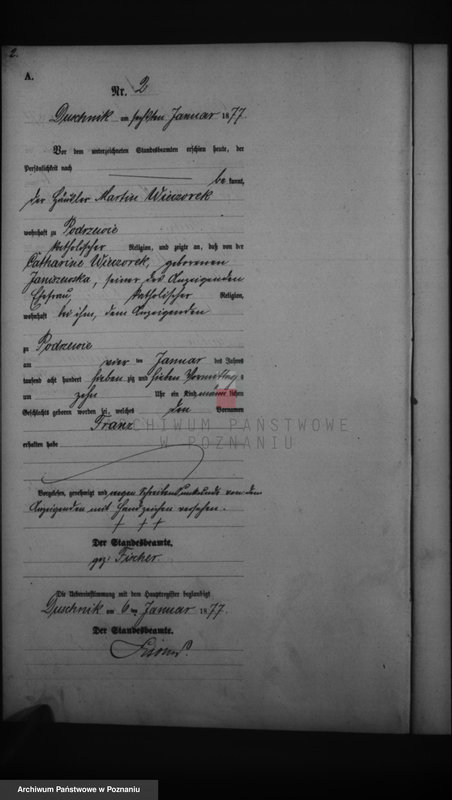 2.
A.
Nr. 2
Duschnik am sechsten Januar 1877
Vor dem unterzeichneten Standesbeamten erschien heute, der
Persönlichkeit nach
be kannt,
der Häusler Martin Wieczorek
wohnhaft zu Podrzewie
katholischer Religion, und zeigte an, daß von der
Catharine Wieczorek, geborenen
Janiszewska, seiner des Anzeigenden
Ehefrau, katholischer Religion,
wohnhaft bei ihm, dem Anzeigenden
zu Podrzewie
am vier ten Januar des Jahres
tausend acht hundert sieben zig und sieben Vormittags
um zehn Uhr ein Kind männlichen
Geschlechts geboren worden sei, welches den Vornamen
Franz
erhalten habe
ARCHIWUM PAŃSTWOWE
W POZNANIU
Vorgelesen, genehmigt und wegen Schreibensunkunde von dem
Anzeigenden mit Handzeichen versehen.
+ + +
Der Standesbeamte.
gez: Fischer.
Die Uebereinstimmung mit dem Hauptregister beglaubigt
Duschnik am 6 ten Januar 1877.
Der Standesbeamte.
Archiwum Państwowe w Poznaniu